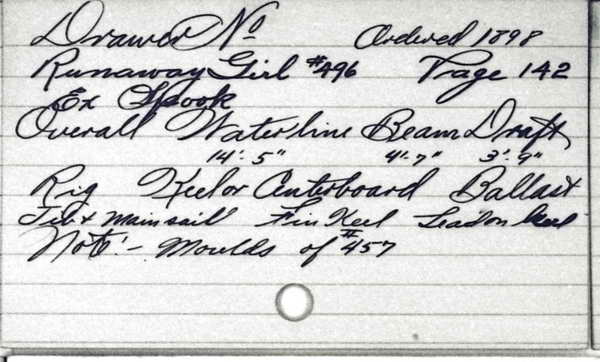 Drawer No Ordered 1898
Runaway Girl #496 Page 142
Ex Spook
Overall Waterline Beam Draft
14'-5" 4'-7" 3'-9"
Rig Keel or Centerboard Ballast
Jib & Mainsail Fin Keel Lead on keel
Note:- Moulds of #457